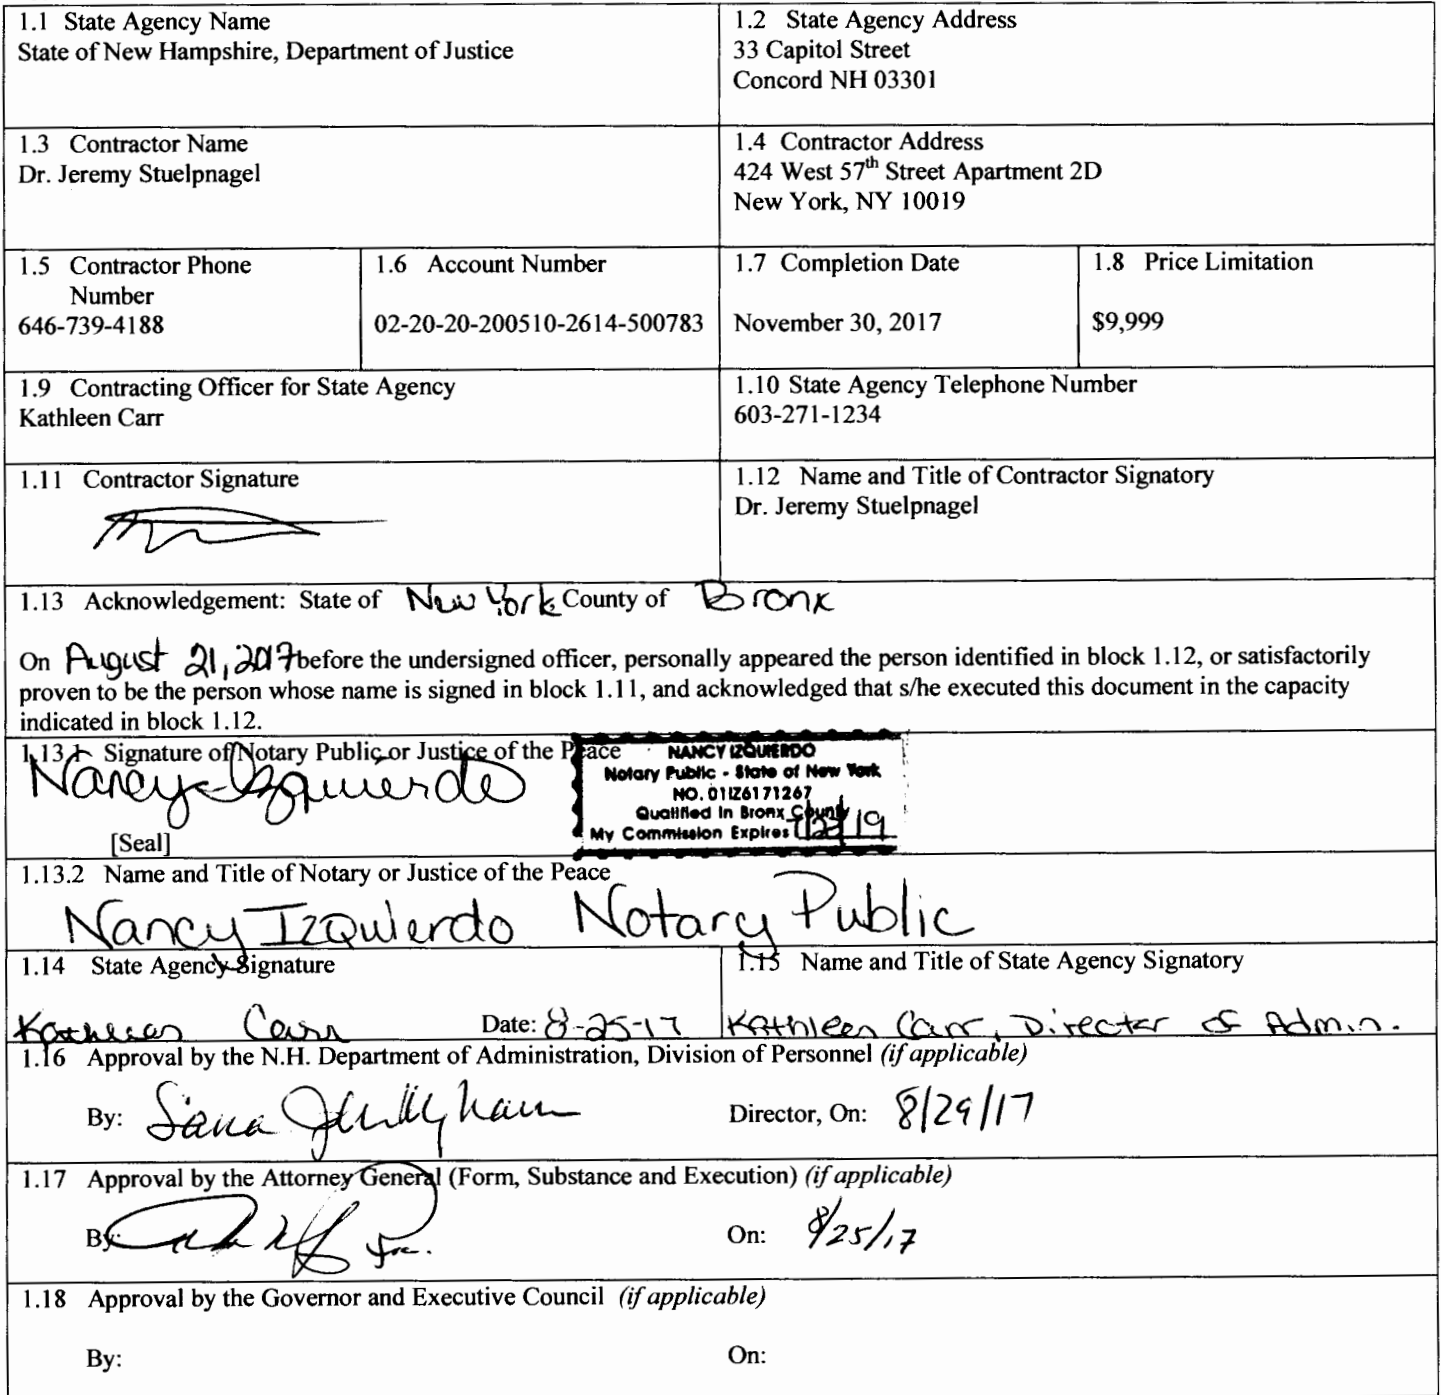 1.1 State Agency Name
State of New Hampshire, Department of Justice
1.2 State Agency Address
33 Capitol Street
Concord NH 03301
1.3 Contractor Name
Dr. Jeremy Stuelpnagel
1.4 Contractor Address
424 West 57th Street Apartment 2D
New York, NY 10019
1.5 Contractor Phone
Number
646-739-4188
1.6 Account Number
02-20-20-200510-2614-500783
1.7 Completion Date
November 30, 2017
1.8 Price Limitation
$9,999
1.9 Contracting Officer for State Agency
Kathleen Carr
1.10 State Agency Telephone Number
603-271-1234
1.11 Contractor Signature
1.12 Name and Title of Contractor Signatory
Dr. Jeremy Stuelpnagel
1.13 Acknowledgement: State of New York County of Bronx
On August 21, 2017 before the undersigned officer, personally appeared the person identified in block 1.12, or satisfactorily
proven to be the person whose name is signed in block 1.11, and acknowledged that s/he executed this document in the capacity
indicated in block 1.12.
1.13.1 Signature of Notary Public or Justice of the Peace
Nancy Izquierdo
[Seal]
NANCY IZQUIERDO
Notary Public - State of New York
NO. 01IZ6171267
Qualified in Bronx County
My Commission Expires /19
1.13.2 Name and Title of Notary or Justice of the Peace
Nancy Izquierdo Notary Public
1.14 State Agency Signature
Kathleen Carr Date: 8-25-17
1.15 Name and Title of State Agency Signatory
Kathleen Carr, Director of Admin.
1.16 Approval by the N.H. Department of Administration, Division of Personnel (if applicable)
By: Director, On: 8/29/17
1.17 Approval by the Attorney General (Form, Substance and Execution) (if applicable)
By: On: 8/25/17
1.18 Approval by the Governor and Executive Council (if applicable)
By: On: